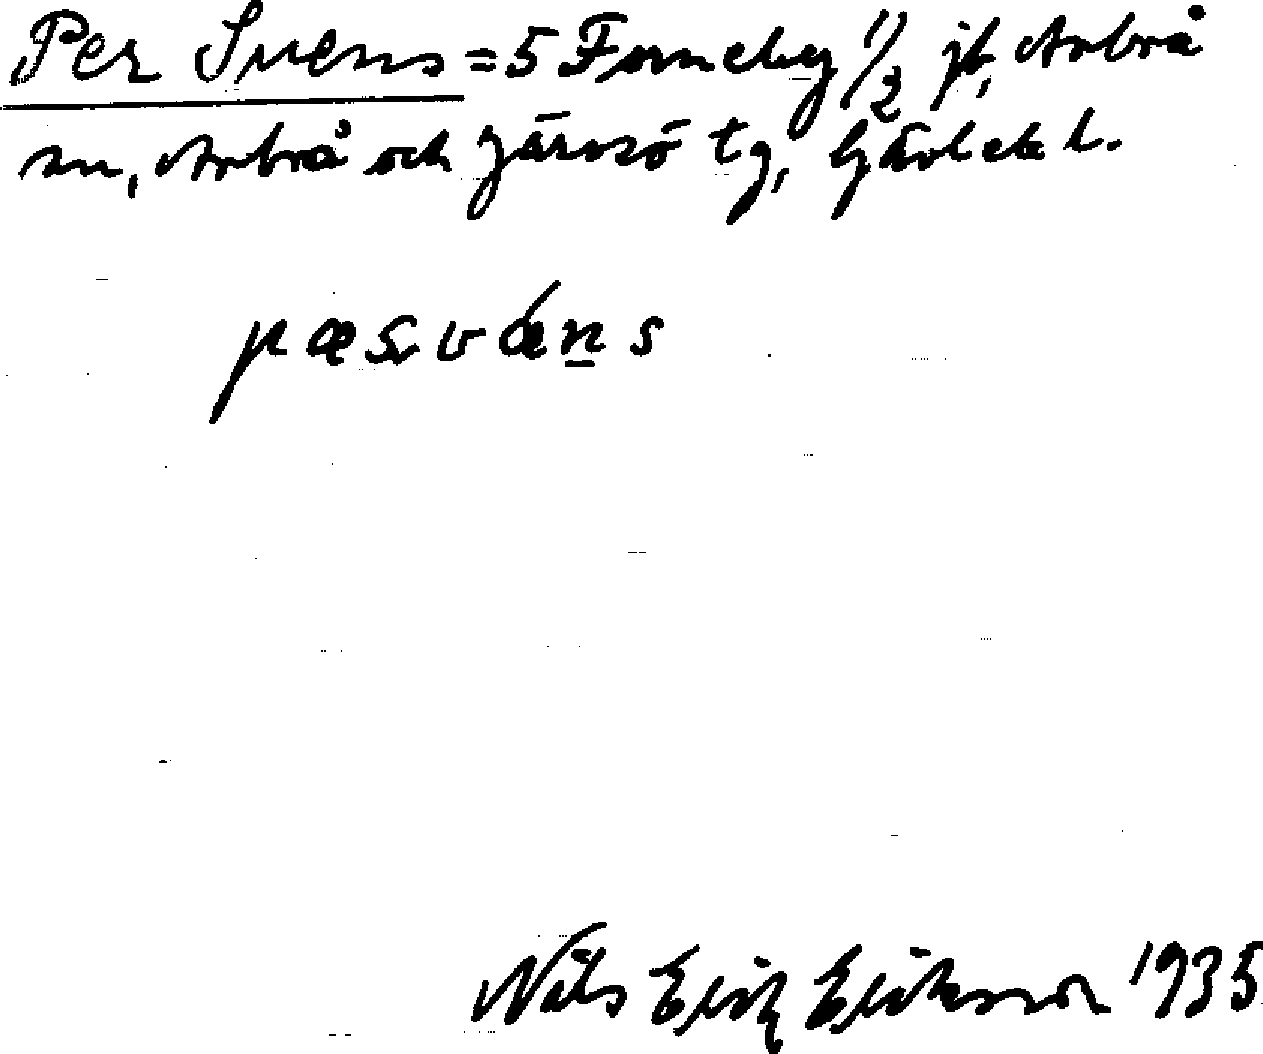 Per Svens = 5 Forneby 1/2 jb, Arbrå
sn, Arbrå och Järvsö tg, Gävleb l.
pæsvǽn̲s
Nils Erik Eriksson 1935